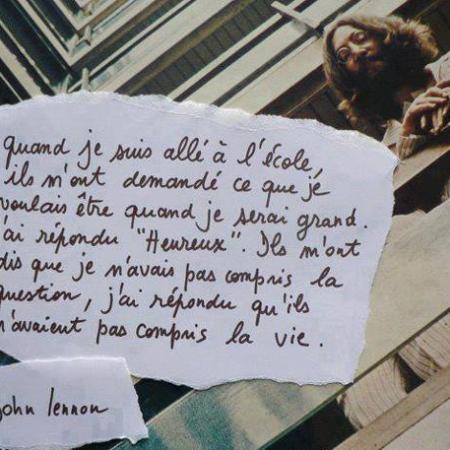 quand je suis allé à l'école,
ils m'ont demandé ce que je
voulais être quand je serai grand.
j'ai répondu "Heureux". Ils m'ont
dis que je n'avais pas compris la
question, j'ai répondu qu'ils
n'avaient pas compris la vie.
john lennon